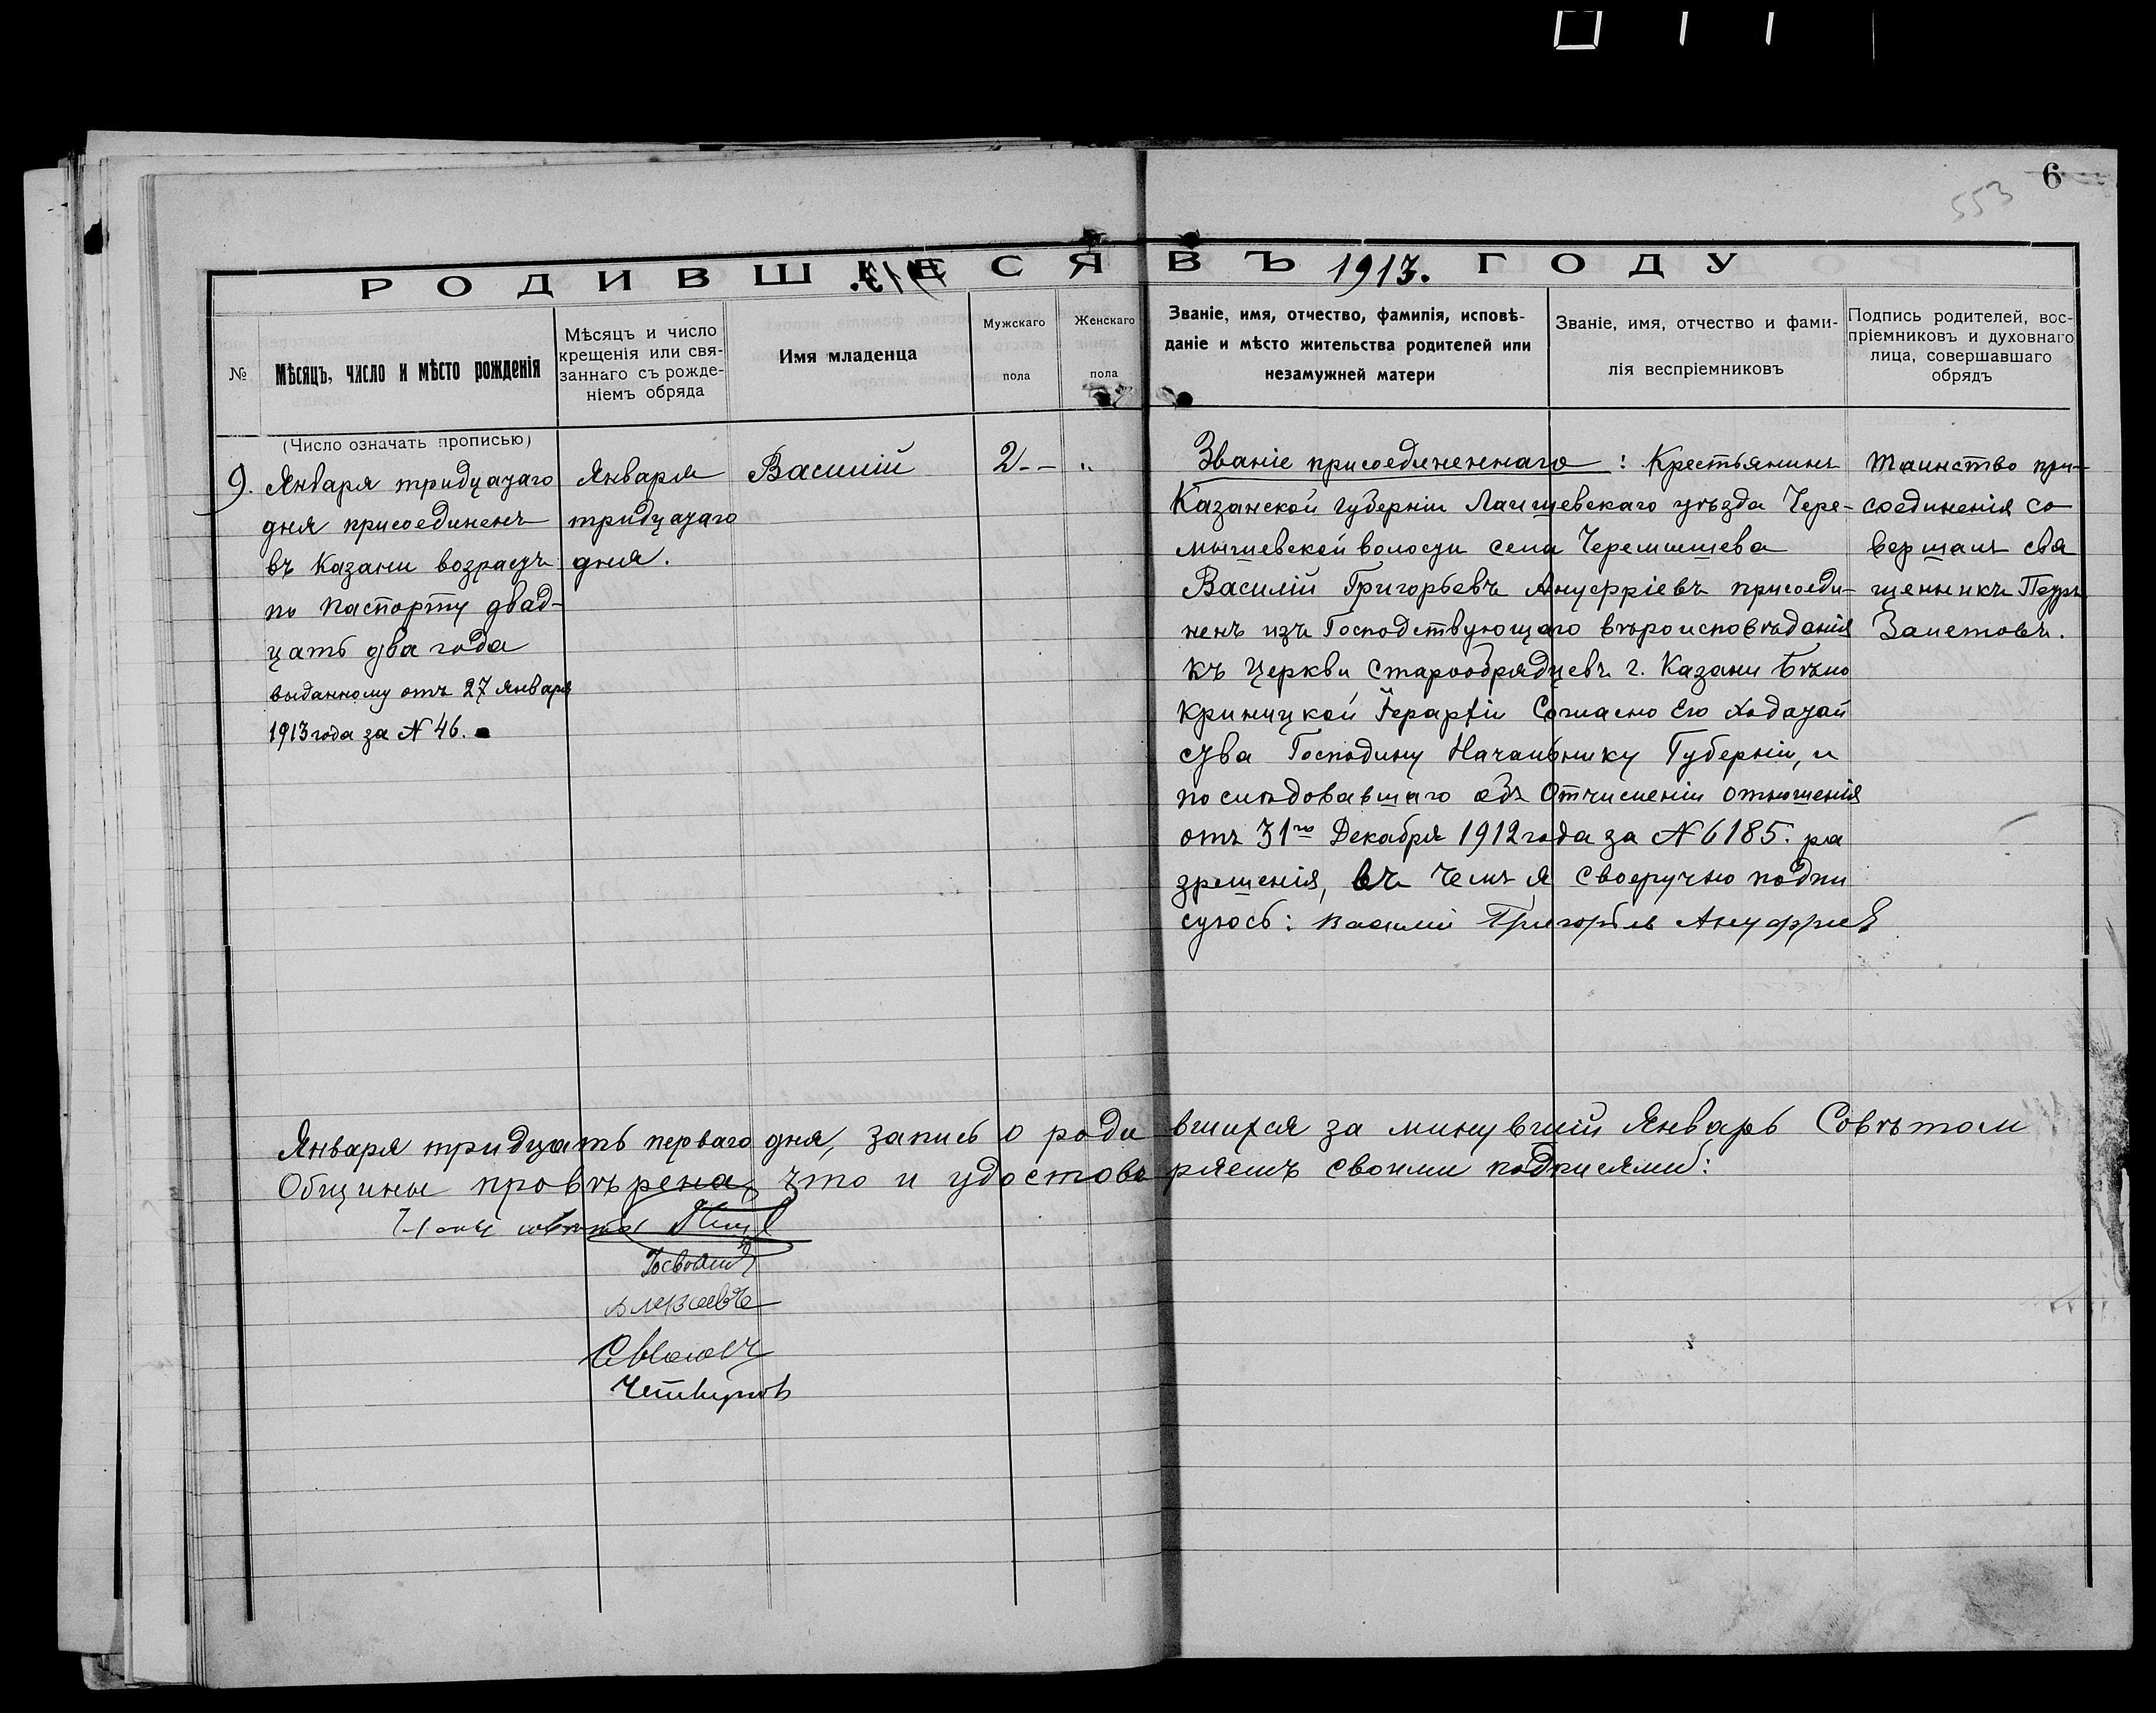 6
553
РОДИВШІЕСЯ ВЪ 1913. ГОДУ
№
Мѣсяцъ, число и мѣсто рожденія
Мѣсяцъ и число
крещенія или свя-
заннаго съ рожде-
ніемъ обряда
Имя младенца
Мужскаго
пола
Женскаго
пола
Званіе, имя, отчество, фамилія, исповѣ-
даніе и мѣсто жительства родителей или
незамужней матери
Званіе, имя, отчество и фами-
лія веспріемниковъ
Подпись родителей, вос-
пріемниковъ и духовнаго
лица, совершавшаго
обрядъ
(Число означать прописью)
9.
Января тридцатаго
дня присоединенъ
въ Казани возрастъ
по паспорту двад-
цать два года
выданному отъ 27 января
1913 года за № 46.
Января
тридцатаго
дня.
Василій
2-- "
Званіе присоединеннаго : Крестьянинъ
Казанской губерніи Лаишевскаго уѣзда Чере-
мышевской волости села Черемышева
Василій Григорьевъ Ануфріевъ присоеди-
ненъ изъ Господствующаго вѣроисповѣданія
къ церкви Старообрядцевъ г. Казани Бѣло
криницкой Іерархіи Согласно Его Ходатай
ства Господину Начальнику Губерніи, и
послѣдовавшаго объ Отчисленіи отношенія
отъ 31го Декабря 1912 года за № 6185. ра
зрешенія, въ чемъ я своеручно подпи
суюсь: Василий Григорьев Ануффриев
Таинство при-
соединенія со
вершалъ свя
щенникъ Петръ
Залетовъ.
Января тридцать перваго дня, запись о родившихся за минувший Январь Совѣтом
Общины провѣрена, что и удостовѣряемъ своими подписями:
совѣта
Алексеевъ
Четвергов